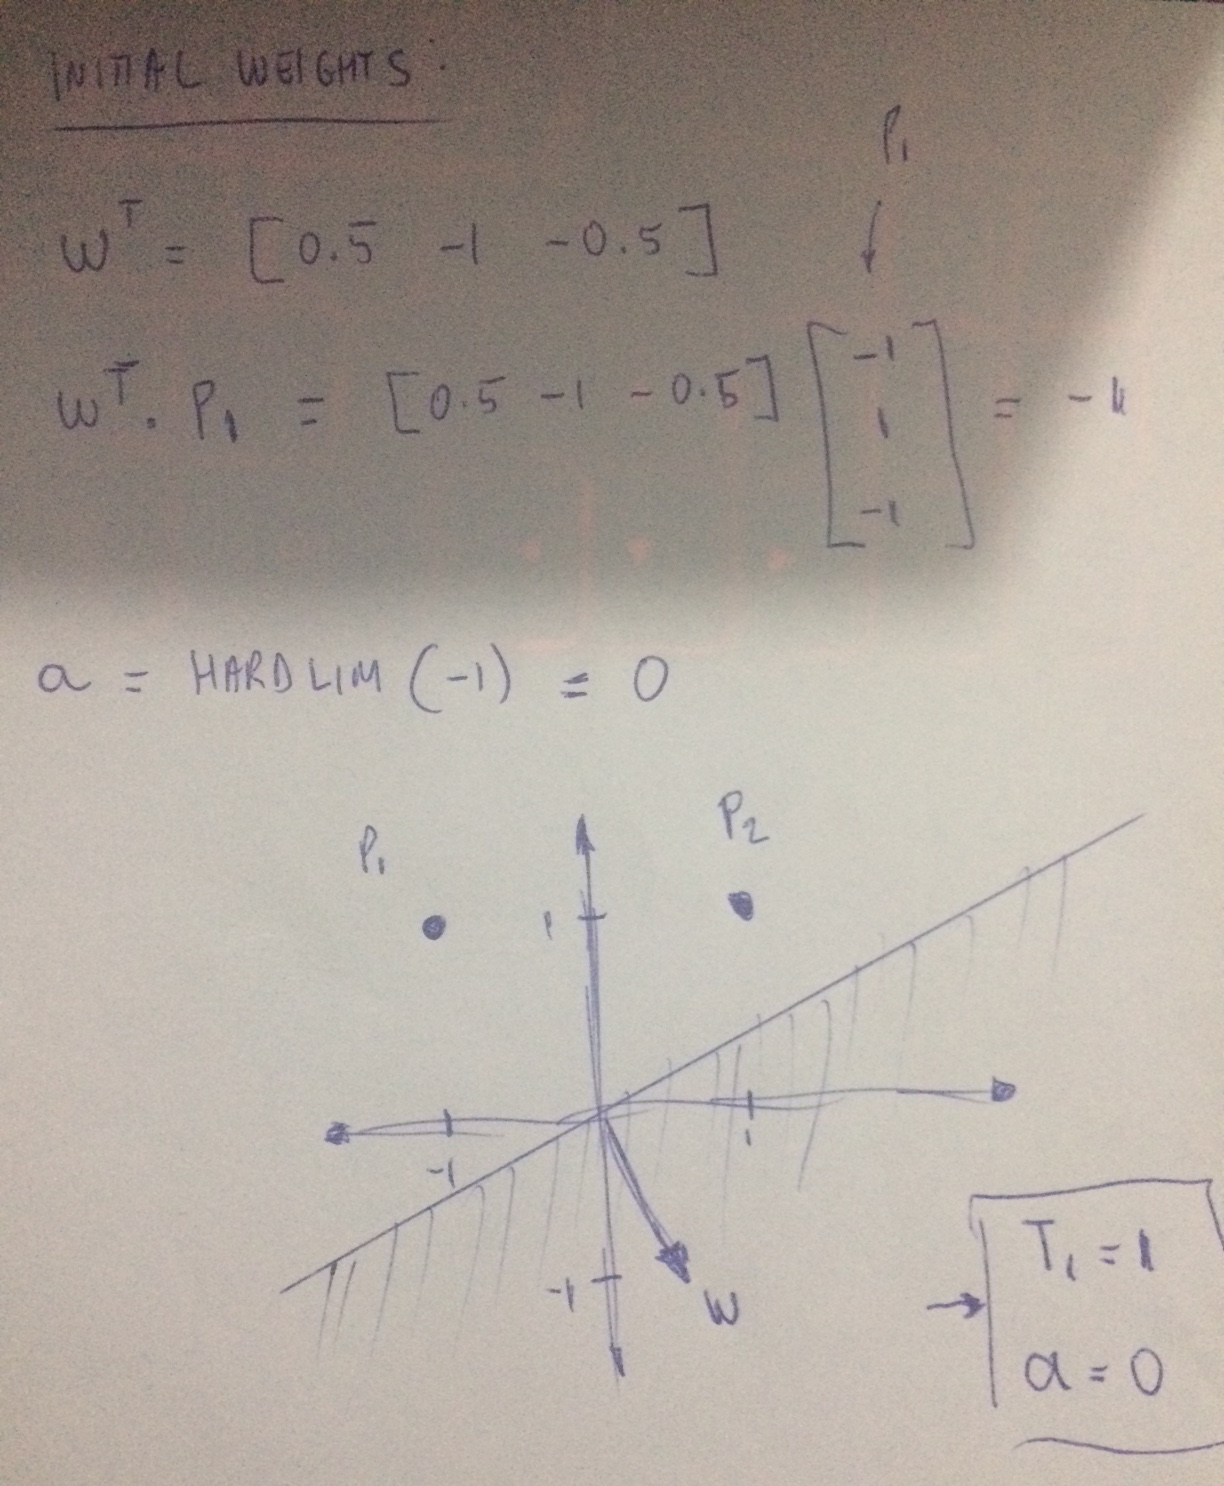 INITIAL WEIGHTS:
P₁
Wᵀ = [0.5 -1 -0.5]
Wᵀ. P₁ = [0.5 -1 -0.5] [-1 1 -1] = -1
a = HARDLIM (-1) = 0
P₁ P₂
1
-1 1
-1 W
T₁ = 1
a = 0